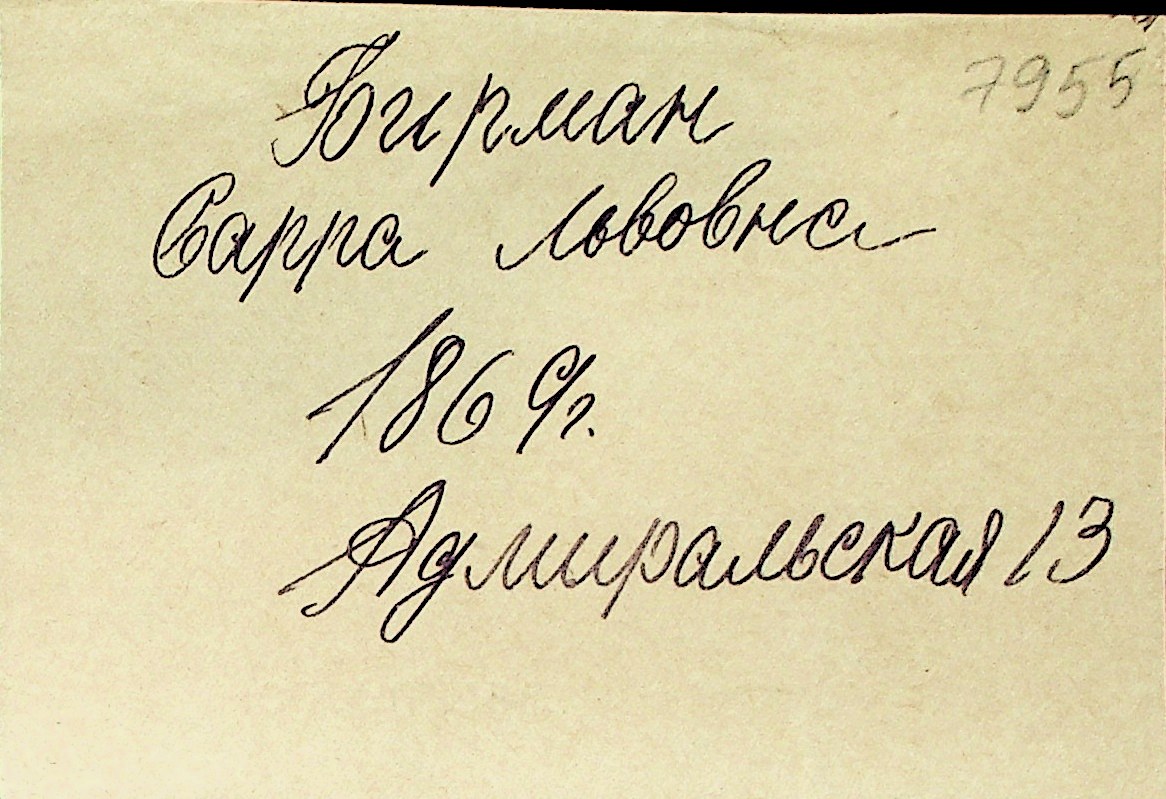 7955
Бирман
Сарра Львовна
1869г.
Адмиральская 13